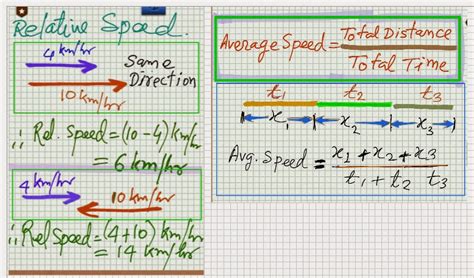 Relative Speed.
4 km/hr
Same
Direction
10 km/hr
∴ Rel. Speed = (10 - 4) km/hr
= 6 km/hr
4 km/hr
10 km/hr
∴ Rel Speed = (4+10) km/hr
= 14 km/hr
Average Speed = Total Distance
Total Time
t1 t2 t3
x1 x2 x3
Avg. Speed = x1 + x2 + x3
t1 + t2 t3